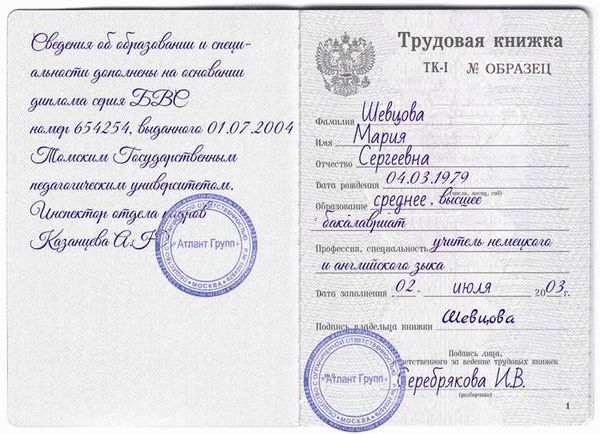 Сведения об образовании и специ-
альности дополнены на основании
диплома серия БВС
номер 654254, выданного 01.07.2004
Томским Государственным
педагогическим университетом.
Инспектор отдела кадров
Казанцева А.Р.
"Атлант Групп"
МОСКВА
Трудовая книжка
ТК-I № ОБРАЗЕЦ
Фамилия Шевцова
Имя Мария
Отчество Сергеевна
Дата рождения 04.03.1979
(число, месяц, год)
Образование среднее, высшее
бакалавриат
Профессия, специальность учитель немецкого
и английского зыка
Дата заполнения 02. июля 2003г.
Подпись владельца книжки Шевцова
Подпись лица,
ответственного за ведение трудовых книжек
Серебрякова И.В.
(разборчиво)
"Атлант Групп"
МОСКВА
1